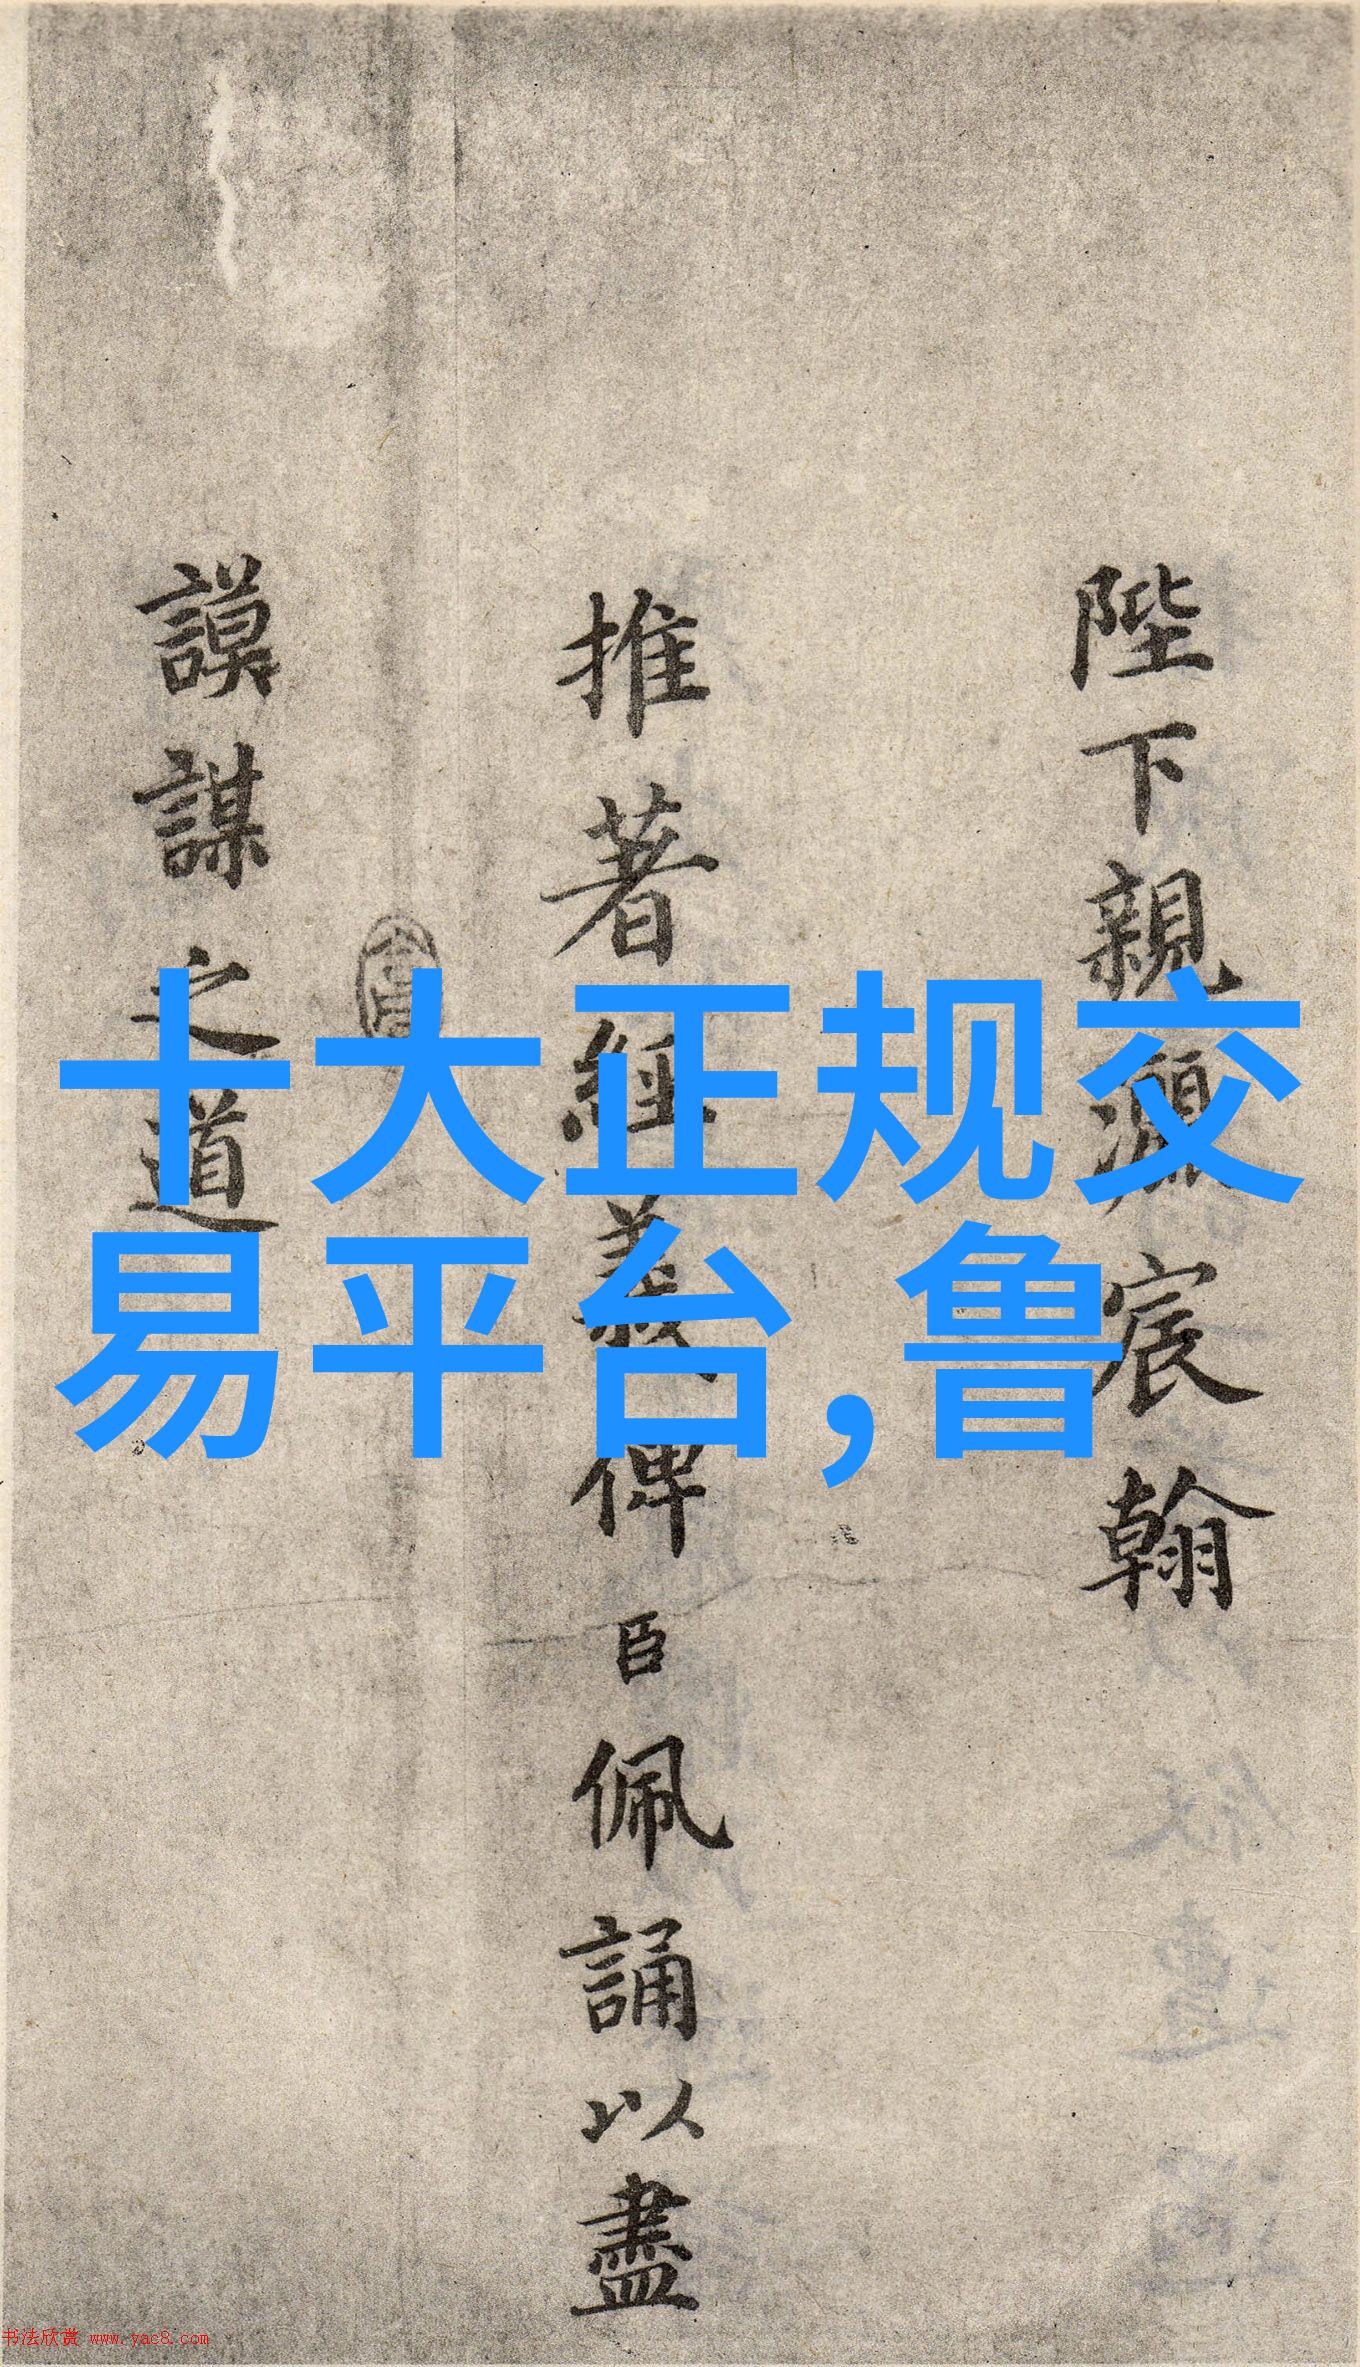 陛下親灑宸翰
推著經義俾臣佩誦以盡
謨謀之道
十大正规交
易平台,鲁
书法欣赏 www.yac8.com